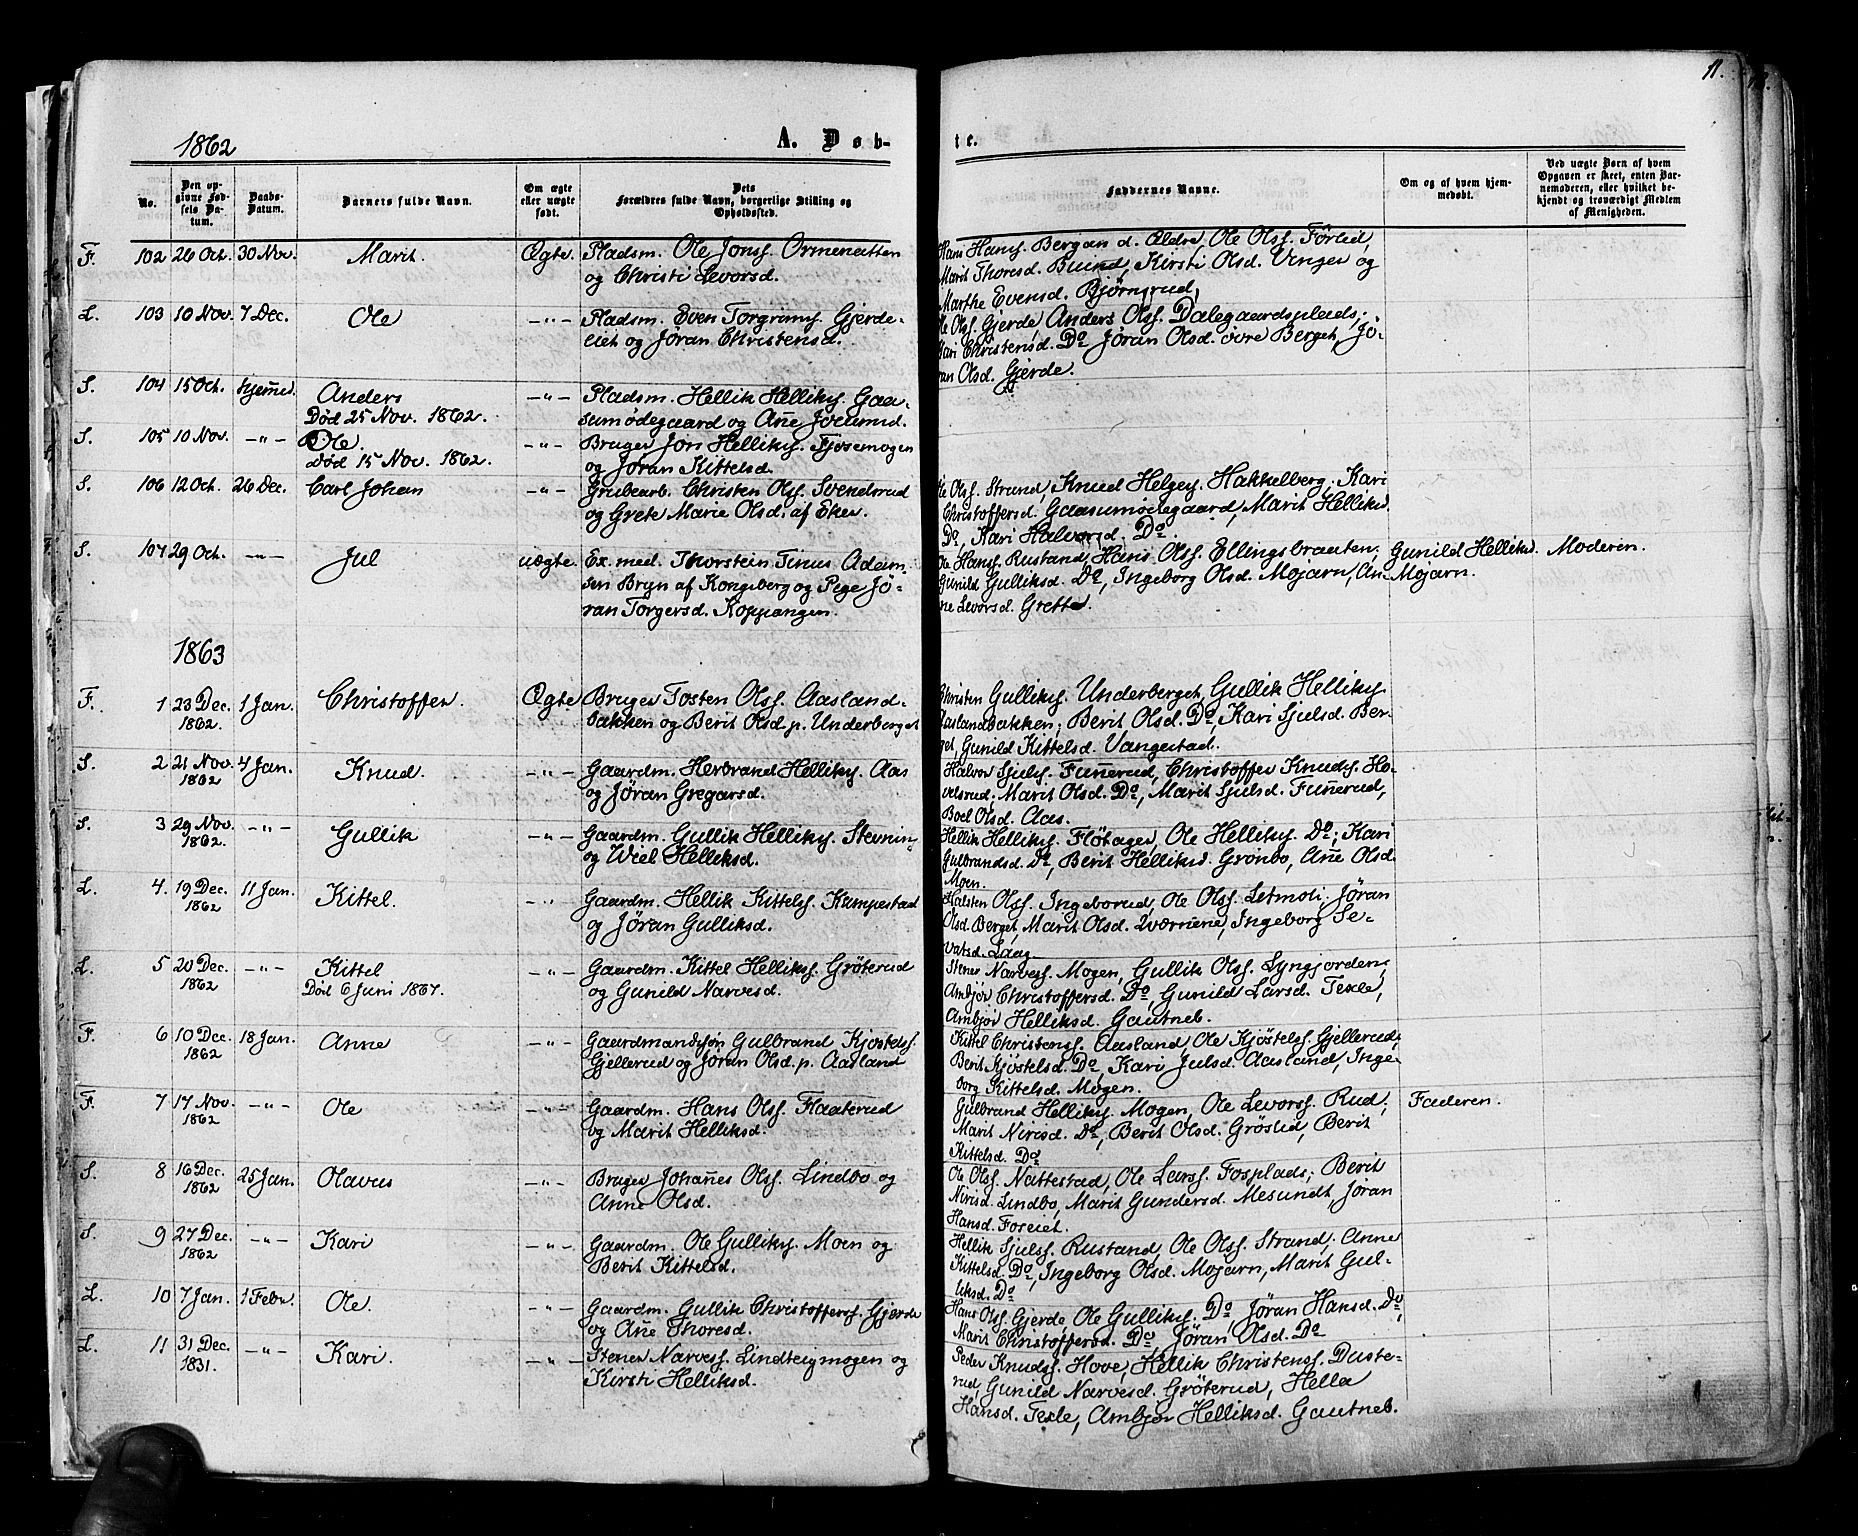 11.
1862
A. Døb-
te.
No.
Den op-
givne Fød-
sels Da-
tum.
Daabs-
Datum.
Barnets fulde Navn.
Om ægte
eller uægte
født.
Dets
Forældres fulde Navn, borgerlige Stilling og
Opholdssted.
Faddernes Navne.
Om og af hvem hjem-
medøbt.
Ved uægte Børn af hvem
Opgaven er skeet, enten Bar-
nemoderen, eller hvilket be-
kjendt og troværdigt Medlem
af Menigheden.
F. 102 26 Oct. 30 Nov. Marit. Ægte. Pladsm. Ole Jonss. Ormenatten
og Christi Levorsd.
Hans Hanss. Bergan d. Ældre, Ole Olss. Førlid,
Marit Thoresd. Buind, Kirsti Olsd. Vinger og
Marthe Evensd. Bjørngrud,
L. 103 10 Nov. 7 Dec. Ole -"- Pladsm. Even Torgrimss. Gjerde-
eiet og Jøran Christensd.
Ole Olss. Gjerde, Anders Olss. Dalegaardsplads;
Kari Christensd. Do Jøran Olsd. øvre Berget, Jø-
ran Olsd. Gjerde.
S. 104 15 Oct. Hjemmed. Anders
Død 25 Nov. 1862. -"- Pladsm. Hellik Helliks. Gaa-
sumødegaard og Ane
S. 105 10 Nov. -"- Ole.
Død 15 Nov. 1862. -"- Bruger Jon Helliks. Fjosemogen
og Jøran Kittelsd.
S. 106 12 Oct. 26 Dec. Carl Johan -"- Grubearb. Christen Olss. Svendsrud
og Grete Marie Olsd. af Eker.
Ole Olss. Strand, Knud Helges. Hakkelberg. Kari
Christoffersd. Gaasumødegaard, Marit Helliksd
Do, Kari Halvorsd. Do.
S. 107 29 Oct. -"- Jul uægte. Ex. med. Thorstein Tinus Adam-
sen Bryn af Kongsberg og Pige Jø-
ran Torgersd. Koppangen.
Ole Hanss. Rustand, Hans Olss. Ellingsbraaten,
Gunild Gulliksd. Do, Ingeborg Olsd. Mojarn, An-
ne Levorsd. Grette.
Gunild Helliksd.
Mojarn.
Moderen.
1863
F. 1 23 Dec.
1862. 1 Jan. Christoffer. Ægte Bruger Tosten Olss. Aasland-
bakken og Berit Olsd. p. Underberget
Christen Gulliks. Underberget, Gullik Helliks.
Aaslandbakken; Berit Olsd. Do, Kari Sjulsd. Ber-
get, Gunild Kittelsd. Vangestad.
S. 2 21 Nov.
1862 4 Jan. Knud. -"- Gaardm. Herbrand Helliks. Aas
og Jøran Gregarsd.
Halvor Sjuls. Funnerud, Christoffer Knuds. Ho-
velsrud, Marit Olsd. Do, Marit Sjulsd. Funnerud,
Boel Olsd. Aas.
S. 3 29 Nov.
1862. -"- Gullik -"- Gaardm. Gullik Helliks. Stevning
og Wiel Helliksd.
Hellik Helliks. Fløtager, Ole Helliks. Do; Kari
Gulbrandsd. Do, Berit Helliksd. Grønbo, Ane Olsd.
Moen.
L. 4. 19 Dec.
1862 11 Jan. Kittel. -"- Gaardm. Hellik Kittelss. Kampestad
og Jøran Gulliksd.
Halsten Olss. Ingeborud, Ole Olss. Letmoli; Jøran
Olsd. Berget, Marit Olsd. Qværnene, Ingeborg Se-
vatsd. Laag
L. 5 20 Dec.
1862 -"- Kittel
Død 6 Juni 1867. -"- Gaardm. Kittel Hellikss. Grøterud
og Gunild Narvesd.
Stener Narvess. Mogen, Gullik Olss. Lyngjorden;
Ambjør Christoffersd. Do, Gunild Larsd. Texle,
Ambjør Helliksd. Gautneb.
F. 6 10 Dec.
1862 18 Jan. Anne -"- Gaardmandssøn Gulbrand Kjøstelss.
Gjellerud og Jøran Olsd. p. Aasland
Kittel Christenss. Aasland, Ole Kjøstelss. Gjellerud;
Berit Kjøstelsd. Do, Kari Julsd. Aasland, Inge-
borg Kittelsd. Mogen.
F. 7 17 Nov.
1862 -"- Ole -"- Gaardm. Hans Olss. Flaaterud
og Marit Helliksd.
Gulbrand Helliks. Mogen, Ole Levorss. Rud;
Marit Nirisd. Do, Berit Olsd. Grøslid, Berit
Kittelsd. Do
Faderen.
S. 8 16 Dec.
1862 25 Jan. Olavus -"- Bruger Johannes Olss. Lindbo og
Anne Olsd.
Ole Olss. Nattestad, Ole Larss. Fosplads; Berit
Nirisd. Lindbo, Marit Gundersd. Mesundt, Jøran
Hansd. Foseiet.
S. 9 27 Dec.
1862 -"- Kari -"- Gaardm. Ole Gulliks. Moen og
Berit Kittelsd.
Hellik Sjulss. Rustand, Ole Olss. Strand; Anne
Kittelsd. Do, Ingeborg Olsd. Mojarn, Marit Gul-
liksd. Do
L. 10 7 Jan. 1 Febr. Ole. -"- Gaardm. Gullik Christofferss. Gjerde
og Ane Thoresd.
Hans Olss. Gjerde, Ole Gulliks. Do, Jøran Hansd. Do,
Marit Christoffersd. Do, Jøran Olsd. Do
L. 11 31 Dec.
1831. -"- Kari. -"- Stener Narvess. Lindbergmogen og
Kirsti Helliksd.
Peder Knudss. Hove, Hellik Christenss. Duste-
rud, Gunild Narvesd. Grøterud, Hella
Hansd. Texle, Ambjør Helliksd. Gautneb.